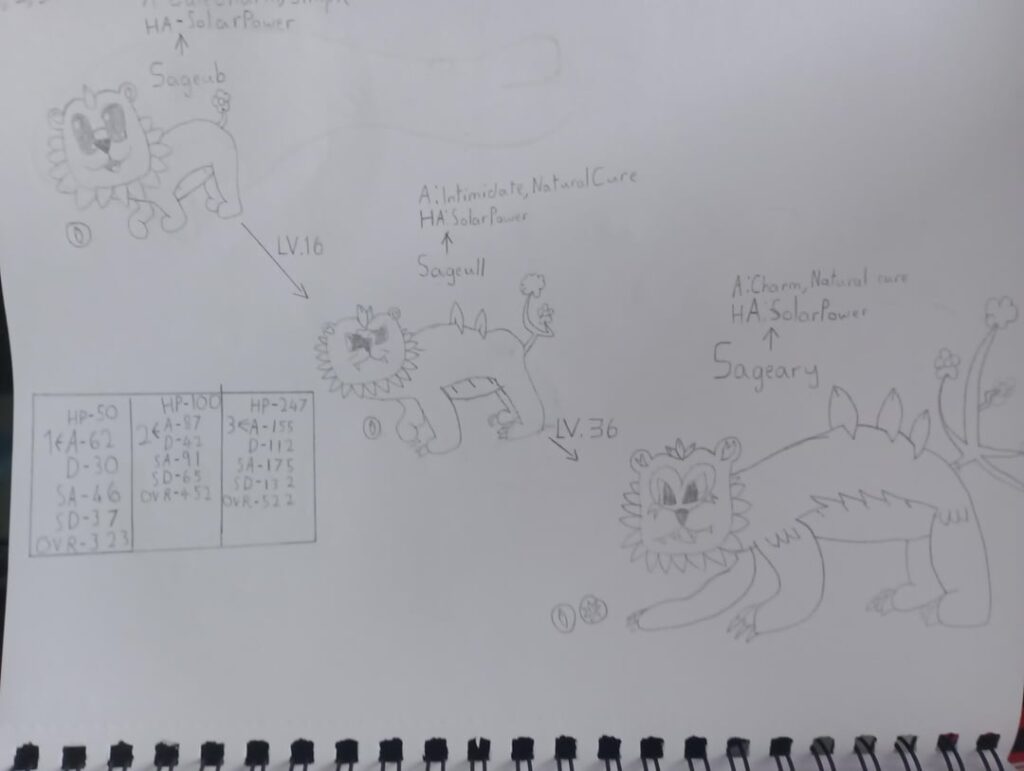 HA-SolarPower
Sageub
LV.16
A:Intimidate, Natural Cure
HA:SolarPower
Sageull
LV.36
A:Charm, Natural cure
HA:SolarPower
Sageary
HP-50
1€A-62
D-30
SA-46
SD-37
OVR-323
HP-100
2€A-87
D-42
SA-91
SD-65
OVR-452
HP-247
3€A-155
D-112
SA-175
SD-132
OVR-522